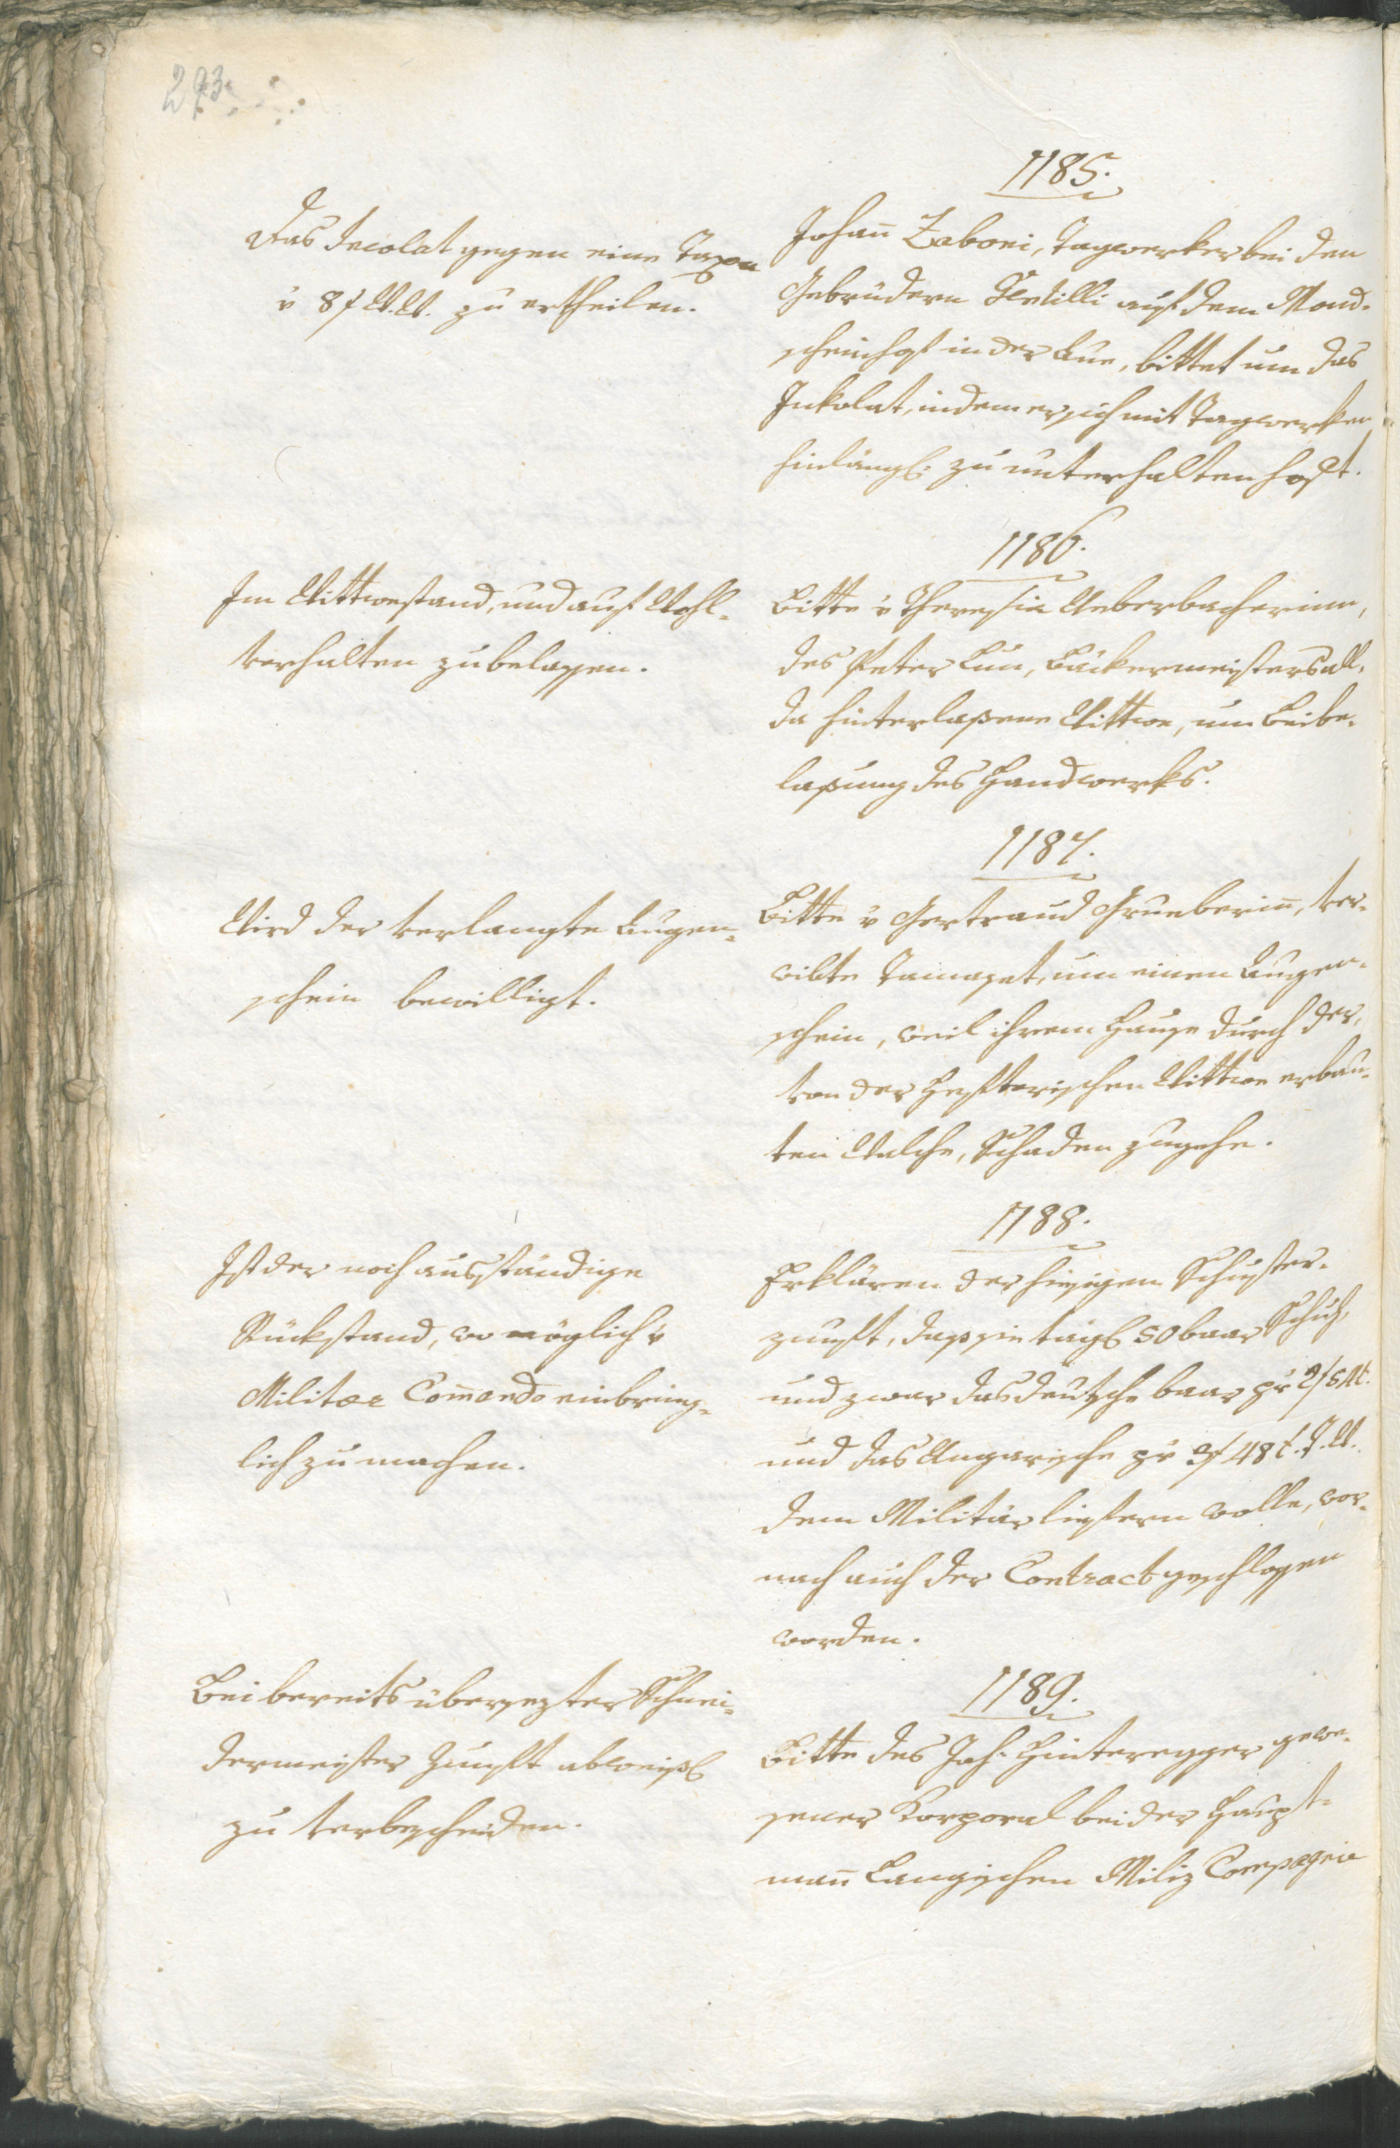 293.
1185.
Das Incolat gegen eine Taxe
v 8 f W.W. zu ertheilen.
Johan̄ Zaboni, Tagwerker bei den
Gebrüdern Stetilli auf dem Mond-
scheinhof in der Aue, bittet um das
Inkolat, indem er sich mit Tagwerken
hinlängl. zu unterhalten hoft.
1186.
Im Wittwestand, und auf Wohl-
verhalten zu belassen.
Bitte v Theresia Ueberbacherinn,
des Peter Lun, Bäckermeisters all-
da hinterlaßene Wittwe, um Beibe-
laßung des Handwerks.
1187.
Wird der verlangte Augen-
schein bewilligt.
Bitte v Gertraud Grueberin̄, ver-
wibte Tamaset, um einen Augen-
schein, weil ihrem Hause durch der,
von der Hofterischen Wittwe erbau-
ten Walche, Schaden zugehe.
1188.
Ist der noch ausständige
Rückstand, wo möglich v
Militar Com̄ando einbring-
lich zu machen.
Erklären der hiesigen Schuster-
zunft, dass sie tägl 50 baar Schuh,
und zwar das deutsche baar pr 2 f
und das Ungarische pr 3 f 48 x.
dem Militär liefern wolle, wor-
nach auch der Contract geschlossen
worden.
1189.
Bei bereits übersezter Schnei-
dermeister Zunft abweisl
zu verbescheiden.
Bitte des Joh. Hinteregger gewe-
sener Korporal bei der Haupt-
man̄ Langischen Miliz Compagnie